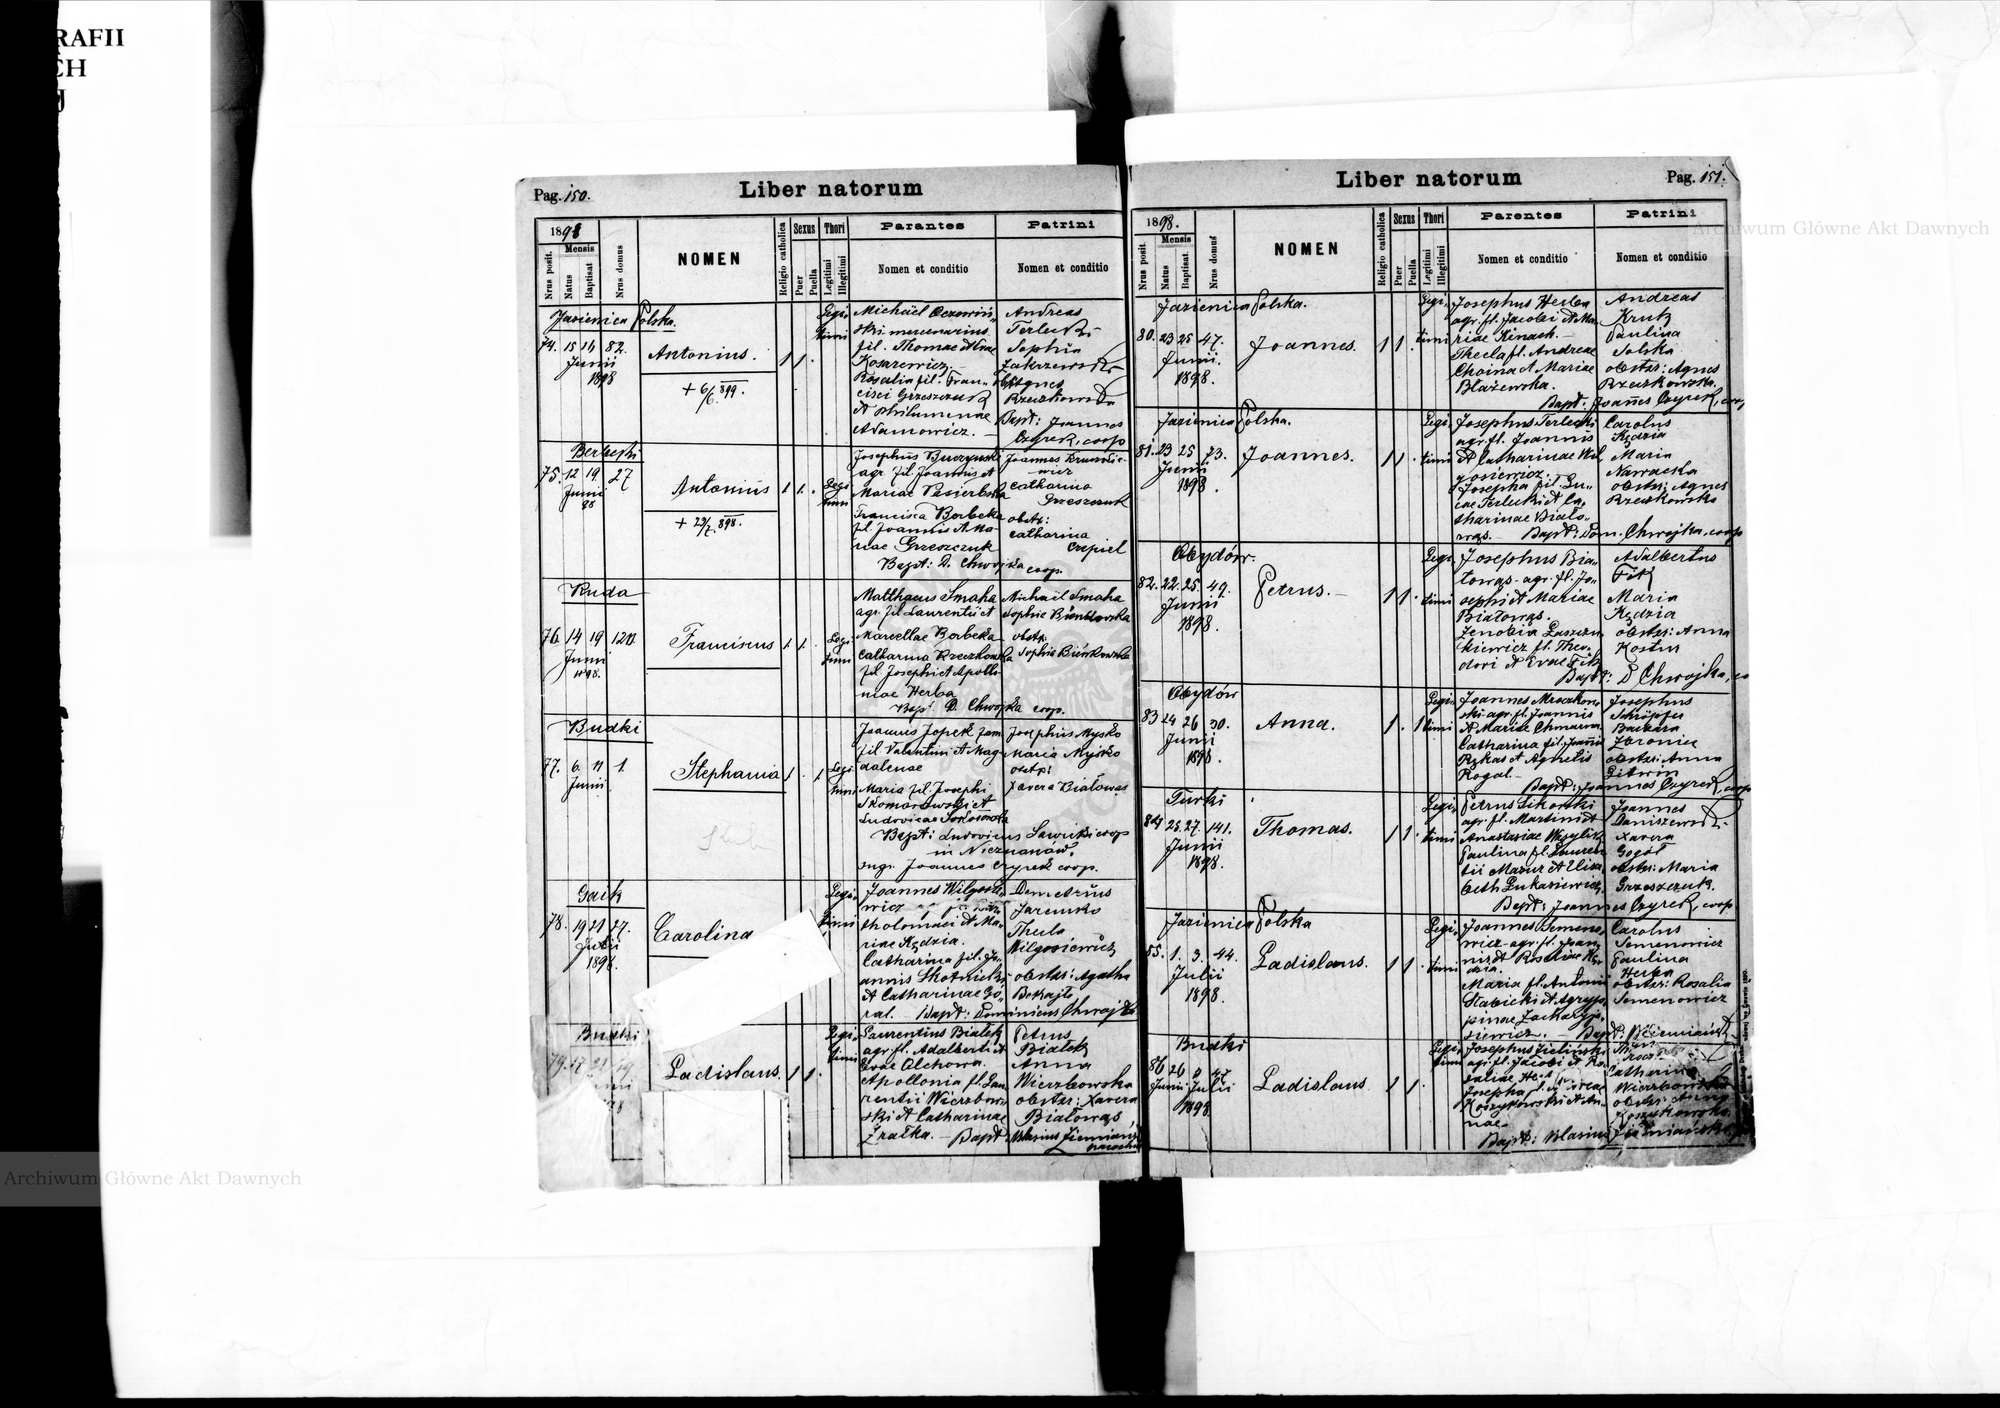 RAFII
CH
J
Archiwum Główne Akt Dawnych
Pag. 150.
Liber natorum
1898
Mensis
Nrus posit.
Natus
Baptisat
Nrus domus
NOMEN
Religio catholica
Sexus
Puer
Puella
Thori
Legitimi
Illegitimi
Parentes
Nomen et conditio
Patrini
Nomen et conditio
Jazienica Polska.
74. 15 16 82.
Junii
1898
Antonius.
+ 6/6. 899.
Legi-
timi
Michaël
ski mercenarius
fil. Thomae et Evae
Koszewicz.
Rosalia fil. Fran-
cisci Grzeszczuk
et Philumenae
Adamowicz.
Andreas
Terlecki
Sophia
Zakrzewska
obst: Agnes
Rzeczkowska
Bapt: Joannes
Czyrek, coop
Berbeki
75. 12 19 27
Junii
98
Antonius
+ 29/7. 898.
Legi
timi
Josephus Buczynski
agr. fil. Joannis et
Mariae Pasierbska
Francisca Berbeka
fil. Joannis et Ma-
riae Grzeszczuk
Bapt: D. Chwojka coop.
Joannes
Catharina
Grzeszczuk
obstr:
Catharina
Czepiel
Ruda
76. 14 19 120.
Junii
1898.
Franciscus
Legi
timi
Matthaeus Smaha
agr. fil. Laurentii et
Marcellae Berbeka
Catharina Rzeczkowska
fil. Josephi et Apollo-
niae Herba
Bapt: D. Chwojka coop.
Michaël Smaha
Sophie Bieńkowska
obstr.
Sophie Bieńkowska
Budki
77. 6. 11 1.
Junii
Stephania
Legi
timi
Joannes Jopek fam
fil. Valentini et Mag
dalenae
Maria fil. Josephi
Skomorowski et
Ludovicae
Bapt: Ludovicus Sawicki coop
in Nieznanów.
Ingr. Joannes Czyrek coop.
Josephus Mysko
Maria Mysko
obstr:
Xavera Białowąs
Gaik
78. 19 21 27.
1898.
Carolina
Legi-
timi
Joannes Wilgosie-
wicz
tholomaei et Ma-
riae Kędzia.
Catharina fil. Jo-
annis Skotnicki
et Catharinae Gó-
ral. Bapt: Dominicus Chwojka
Demetrius
Jaremko
Thecla
Wilgosiewicz
obstr: Agatha
Budki
79. 17 21
Ladislaus.
Legi
timi
Laurentius Białek
agr. fl. Adalberti et
Evae Olchowa.
Apollonia fl. Lau-
rentii Wierzbow-
ski et Catharinae
Żrałka. Bapt: Blasius Ziemiański
parochus
Petrus
Białek
Anna
Wierzbowska
obstr: Xavera
Białowąs
Liber natorum
Pag. 151.
1898.
Mensis
Nrus posit.
Natus
Baptisat.
Nrus domus
NOMEN
Religio catholica
Sexus
Puer
Puella
Thori
Legitimi
Illegitimi
Parentes
Nomen et conditio
Patrini
Nomen et conditio
Jazienica Polska.
80. 23 25 47.
Junii
1898.
Joannes.
Legi-
timi
Josephus Herba
agr. fl. Jacobi et Ma-
riae Kinach.
Thecla fl. Andreae
Choina et Mariae
Błażewska.
Bapt: Joannes Czyrek, coop
Andreas
Krutz
Paulina
Solska
obstr: Agnes
Rzeczkowska.
Jazienica Polska.
81. 23 25 73.
Junii
1898.
Joannes.
Legi-
timi
Josephus Terlecki
agr. fl. Joannis
et Catharinae Wil
gosiewicz.
Josepha fil. Lu-
cae Terlecki et Ca-
tharinae Biało-
wąs. Bapt: Dom. Chwojka, coop
Carolus
Kędzia
Maria
Nawracka
obstr: Agnes
Rzeczkowska
Obydów.
82. 22. 25. 49.
Junii
1898.
Petrus.
Legi-
timi
Josephus Bia-
łowąs agr. fl. Jo-
sephi et Mariae
Białowąs.
Zenobia Łaszcu
kiewicz fl. Theo-
dori et Evae Fik
Bapt: D Chwojka, co
Adalbertus
Fik
Maria
Kędzia
obstr: Anna
Kostur
Obydów
83 24 26 30.
Junii
1898.
Anna.
Legi-
timi
Joannes
ski agr. fl. Joannis
et Mariae Chmarna
Catharina fil. Joannis
Rykas et Agnetis
Rogal.
Bapt: Joannes Czyrek, coop
Josephus
Schöpfer
Barbara
obstr: Anna
Litwin
Turki
84 25. 27. 141.
Junii
1898.
Thomas.
Legi-
timi
Petrus Sikorski
agr. fl. Martini et
Anastasiae Wasylik
Paulina fl. Lauren
tii Mazur et Elisa
beth Łukasiewicz.
Bapt: Joannes Czyrek, coop.
Joannes
Daniszewski
Xavera
Gogół
obstr: Maria
Grzeszczuk.
Jazienica Polska
85. 1. 3. 44.
Julii
1898.
Ladislaus.
Legi-
timi
Joannes Semeno-
wicz agr. fl. Joan
nis et Rosaliae Kę-
dzia.
Maria fl. Antonii
Słabicki et Agryp-
pinae Zacharyja-
siewicz. Bapt: B. Ziemiański
Carolus
Semenowicz
Paulina
Herba
obstr: Rosalia
Semenowicz
Budki
86 26 47
Junii Julii
1898
Ladislaus
Legi-
timi
Josephus Zieliński
agr. fl. Jacobi et Ro-
saliae
Josepha
Koszykowski et An-
nae
Bapt: Blasius Ziemiański
Catharina
Wierzbowska
obstr: Anna
Koszykowska
Archiwum Główne Akt Dawnych